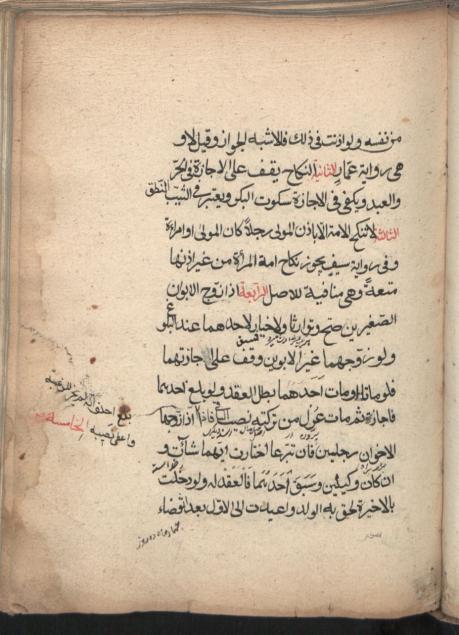 من نفسه ولو اذنت في ذلك فالاشبه الجواز وقيل لا و
هي رواية عمار الثانية النكاح يقف على الاجازة في الحر
والعبد ويكفي في الاجازة سكوت البكر ويعتبر في الثيب النطق
الثالثة لا تنكح الامة الا باذن المولى رجلا كان المولى او امراءة
وفي رواية سيف يجوز نكاح امة المرأة من غير اذنها
متعة وهي منافية للاصل الرابعة اذا زوج الابوان
الصغيرين صح وتوارثا ولا خيار لاحدهما عند البلوغ
ولو زوجهما غير الابوين وقف على اجازتهما
فلو ماتا او مات احدهما بطل العقد ولو بلغ احدهما
فاجازه ثم مات عزل من تركته نصيب فاذا
اذا زوجها
الاخوان برجلين فان تبرعا اختارت ايهما شاءت و
ان كانا وكيلين وسبق احدهما فالعقد له ولو دخلت
بالاخيرة لحق به الولد واعيدت الى الاول بعد انقضاء
بلغ
الخامسة